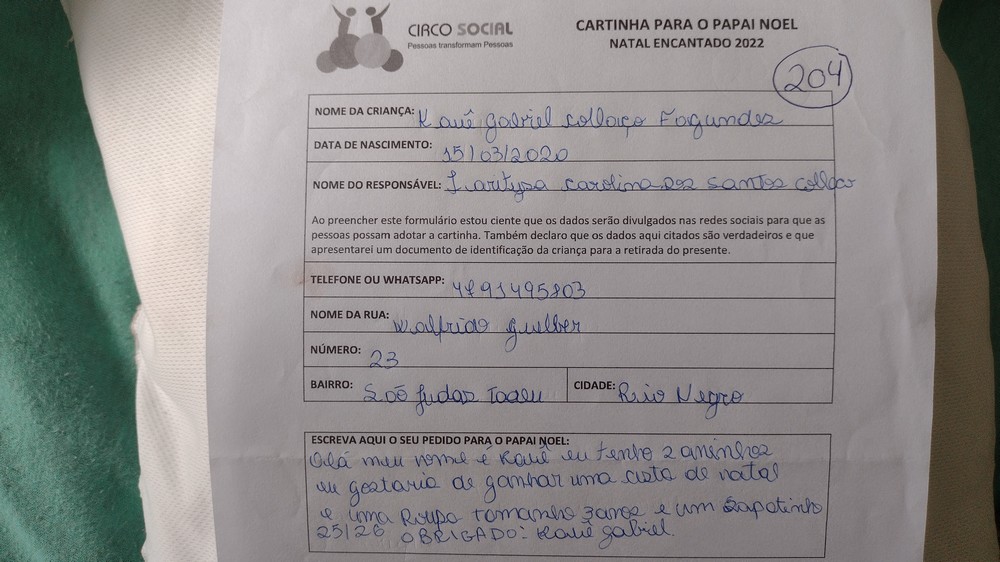 CIRCO SOCIAL
Pessoas transformam Pessoas
CARTINHA PARA O PAPAI NOEL
NATAL ENCANTADO 2022
204
NOME DA CRIANÇA: Kauê gabriel collaço Fagundes
DATA DE NASCIMENTO: 15/03/2020
NOME DO RESPONSÁVEL: carolina dos santos
Ao preencher este formulário estou ciente que os dados serão divulgados nas redes sociais para que as
pessoas possam adotar a cartinha. Também declaro que os dados aqui citados são verdadeiros e que
apresentarei um documento de identificação da criança para a retirada do presente.
TELEFONE OU WHATSAPP:
NOME DA RUA: Walfrido
NÚMERO: 23
BAIRRO: São Judas Tadeu
CIDADE: Rio Negro
ESCREVA AQUI O SEU PEDIDO PARA O PAPAI NOEL:
Olá meu nome é Kauê eu tenho 2 aninhos
eu gostaria de ganhar uma cesta de natal
e uma Roupa tamanho 3 anos e um Sapatinho
25/26 OBRIGADO: Kauê gabriel.